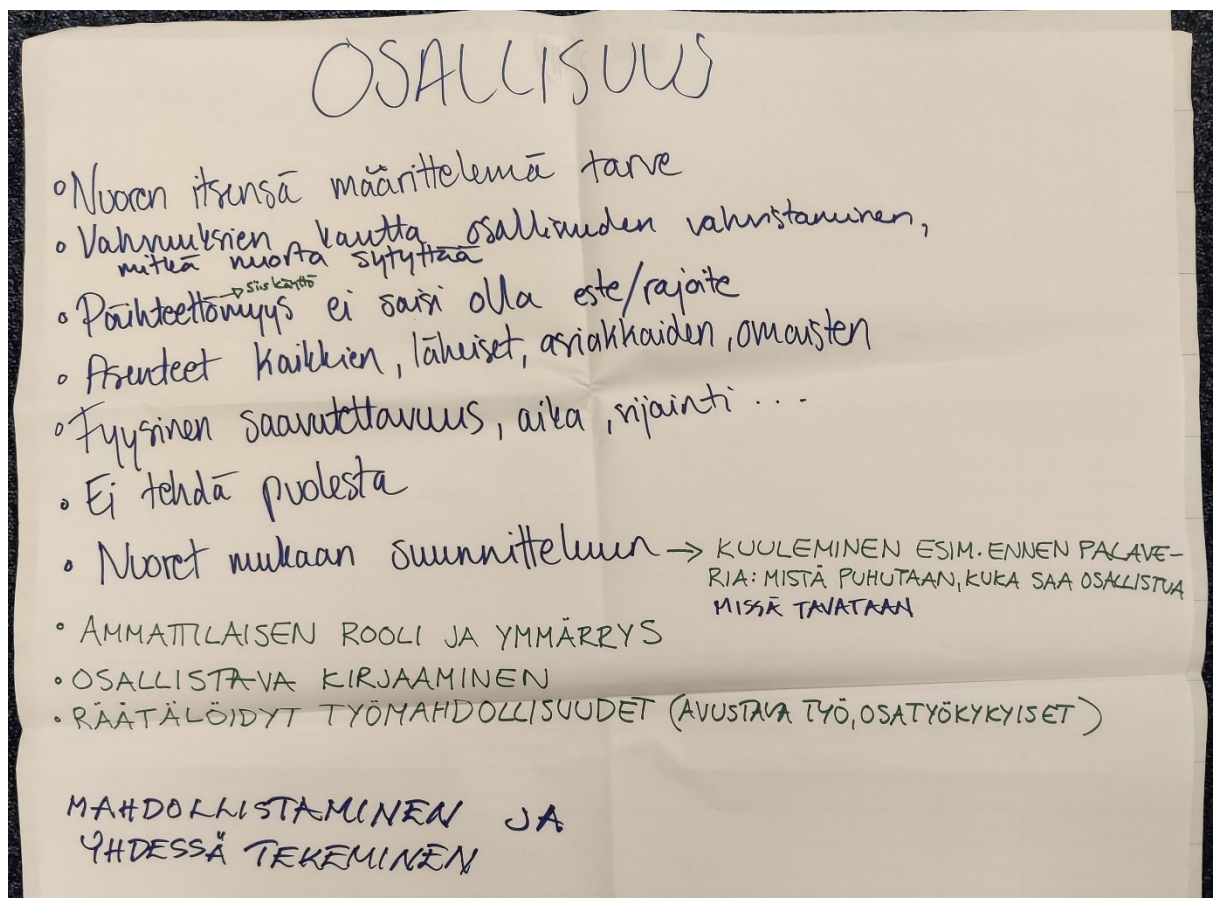 OSALLISUUS
• Nuoren itsensä määrittelemä tarve
• Vahvuuksien kautta osallisuuden vahvistaminen,
mitkä nuorta sytyttää
• Päihteettömyys ei saisi olla este/rajoite
• Asenteet kaikkien, läheiset, asiakkaiden, omaisten
• Fyysinen saavutettavuus, aika, sijainti ...
• Ei tehdä puolesta
• Nuoret mukaan suunnitteluun → KUULEMINEN ESIM. ENNEN PALAVE-
RIA: MISTÄ PUHUTAAN, KUKA SAA OSALLISTUA
MISSÄ TAVATAAN
• AMMATTILAISEN ROOLI JA YMMÄRRYS
• OSALLISTAVA KIRJAAMINEN
• RÄÄTÄLÖIDYT TYÖMAHDOLLISUUDET (AVUSTAVA TYÖ, OSATYÖKYKYISET)
MAHDOLLISTAMINEN JA
YHDESSÄ TEKEMINEN